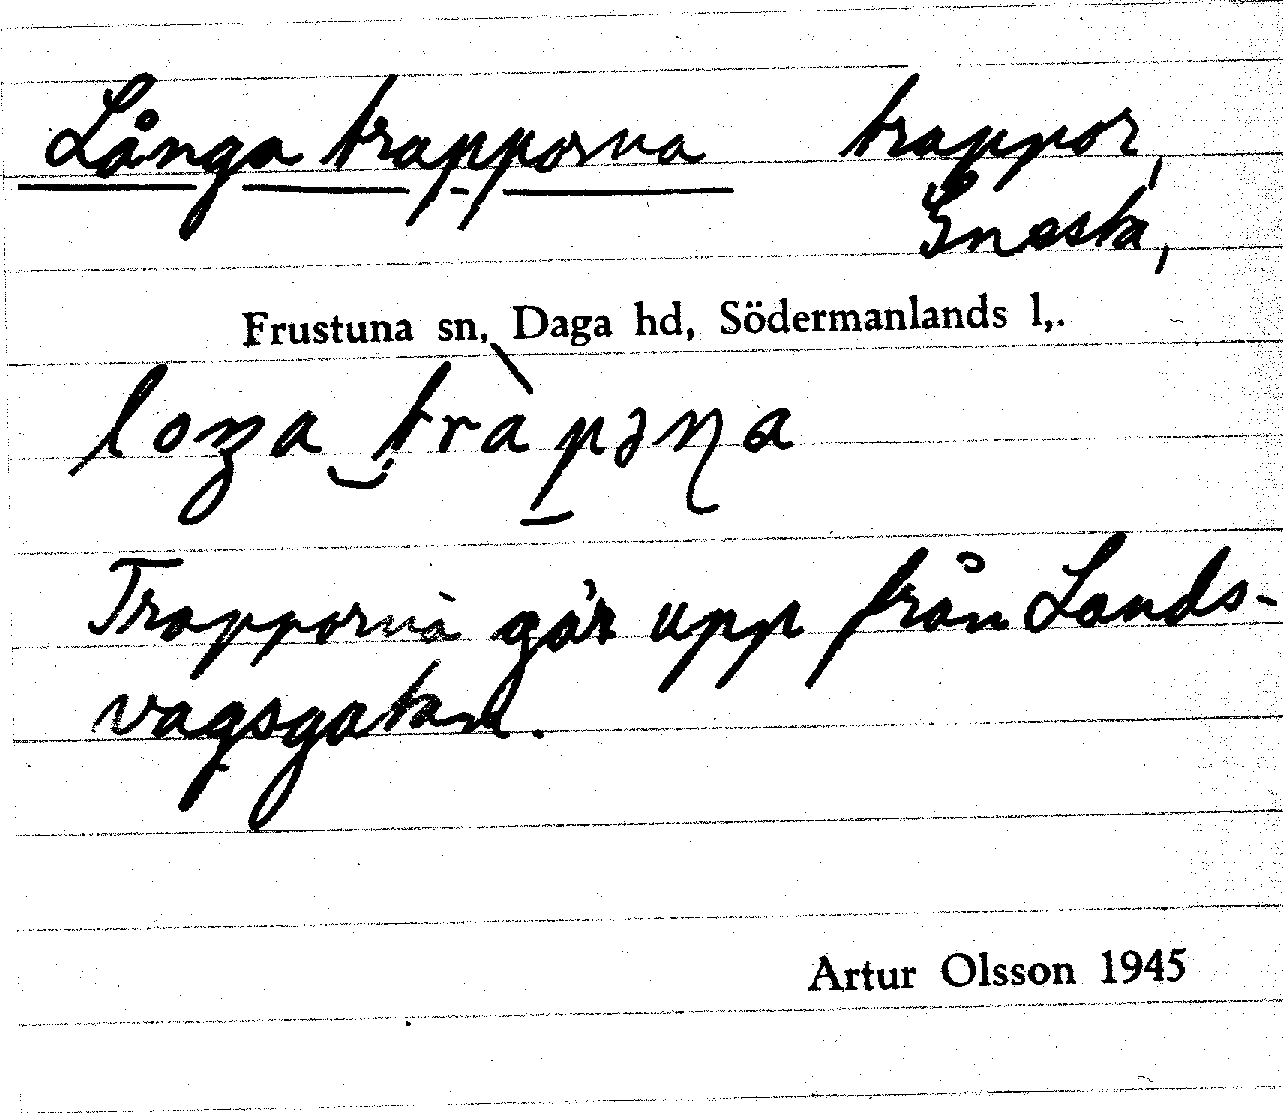 Långa trapporna trappor,
Gnesta,
Frustuna sn, Daga hd, Södermanlands l,.
loŋa‿tràpəɳa
Trapporna går upp från Lands-
vägsgatan.
Artur Olsson 1945